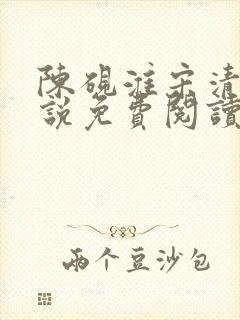 陳硯淮宋清
說免費閱讀
兩个豆沙包